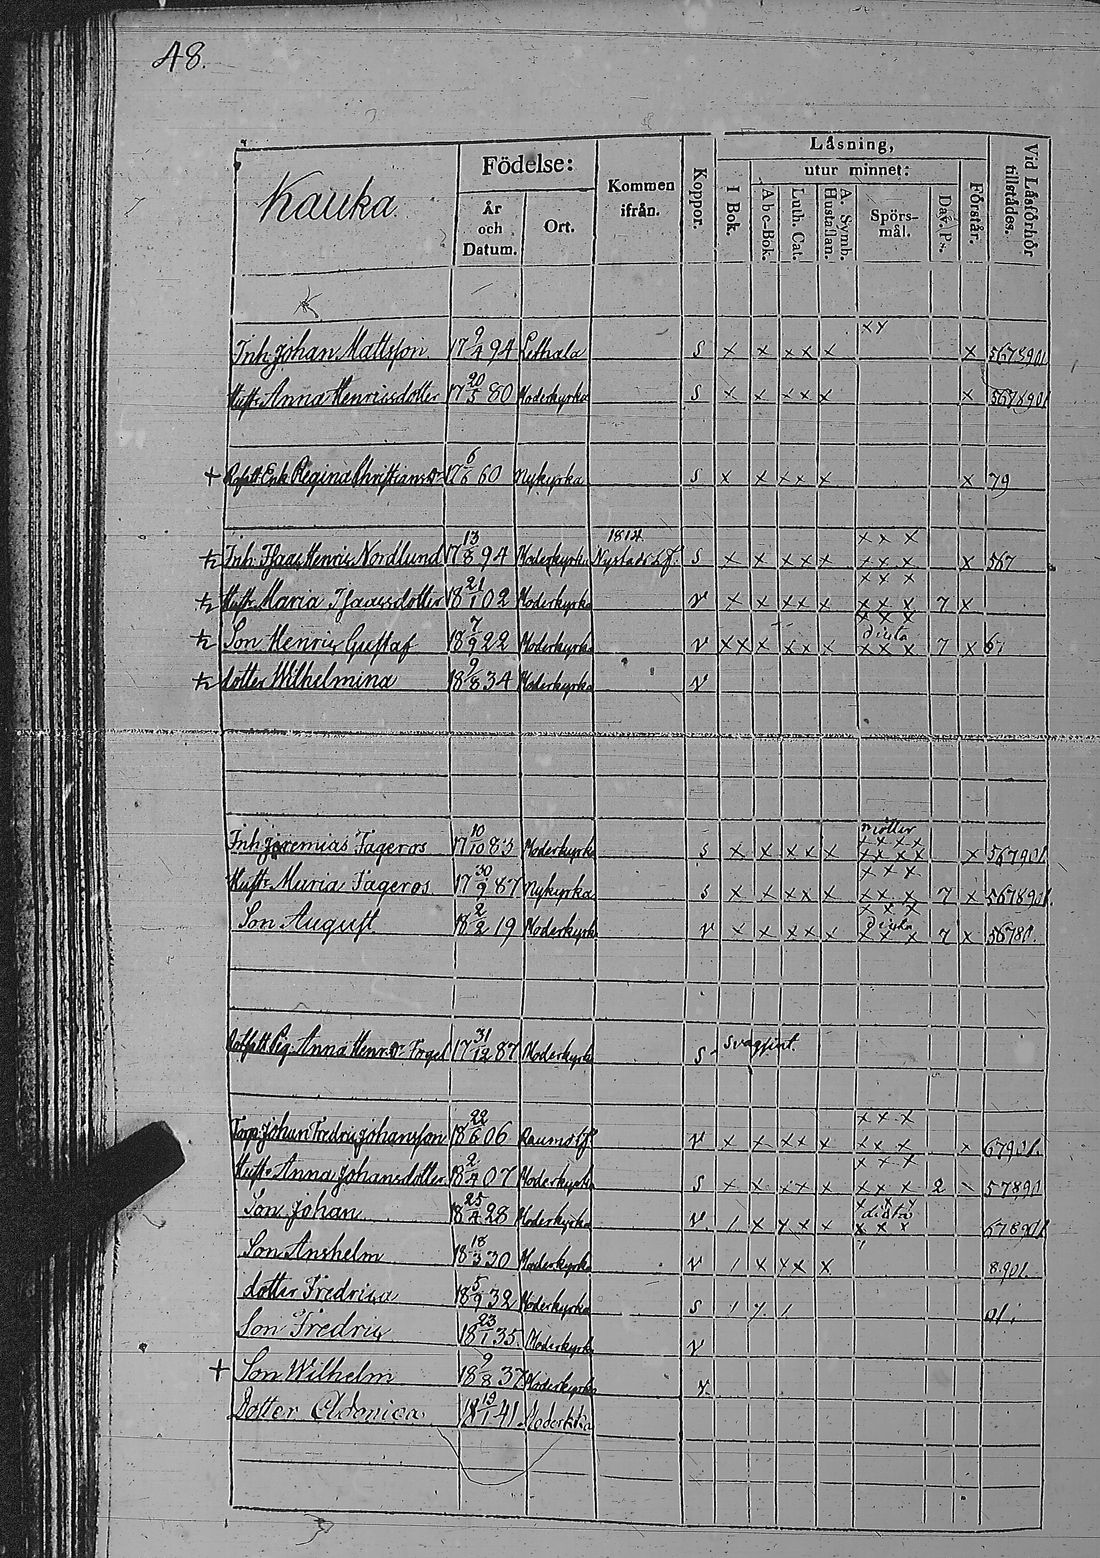 48.
Kauka.
Födelse:
År och Datum.
Ort.
Kommen ifrån.
Koppor.
Läsning,
I Bok.
utur minnet:
Abc-Bok.
Luth. Cat.
A. Symb. Hustaflan.
Spörs-mål.
Dav. Ps.
Förstår.
Vid Läsförhör tillstädes.
x y
Inh. Johan Mattsson 17 9/4 94 Lethala S x x x x x x 5678901
Hustr. Anna Henricsdotter 17 20/5 80 Moderkyrka S x x x x x x 5678901
+ Enk. Regina Christiansdr 17 6/6 60 Nykyrka S x x x x x x 79
1814 x x x
Inh. Isaac Henric Nordlund 17 13/8 94 Moderkyrka Nystads S x x x x x x x x x 567
x x x
Hustr. Maria Isaacsdotter 18 21/1 02 Moderkyrka V x x x x x x x x 7 x
x x x
Son Henric Gustaf 18 7/9 22 Moderkyrka V x x x x x x x x x 7 x 6
dotter Wilhelmina 18 9/8 34 Moderkyrka V
x x x x
Inh. Jeremias Fageros 17 10/10 83 Moderkyrka S x x x x x x x x x x 567901
x x x
Hustr. Maria Fageros 17 30/9 87 Nykyrka S x x x x x x x x 7 x 5678901
x x x
Son August 18 2/2 19 Moderkyrka V x x x x x x x x 7 x 56781.
Pig. Anna Henr. Dr Fogel 17 31/12 87 Moderkyrka S svagsint.
x x x
Torp. Johan Fredric Johansson 18 22/6 06 Raumo V x x x x x x x x x 67901.
x x x
Hustr. Anna Johansdotter 18 2/4 07 Moderkyrka S x x x x x x x x 2 57890
Son Johan 18 25/4 28 Moderkyrka V 1 x x x x x x x 678901
Son Anshelm 18 18/3 30 Moderkyrka V 1 x x x x 8901.
dotter Fredrica 18 5/9 32 Moderkyrka S 01.
Son Fredric 18 23/1 35 Moderkyrka V
+ Son Wilhelm 18 9/8 37 Moderkyrka V.
Dotter 18 19/1 41